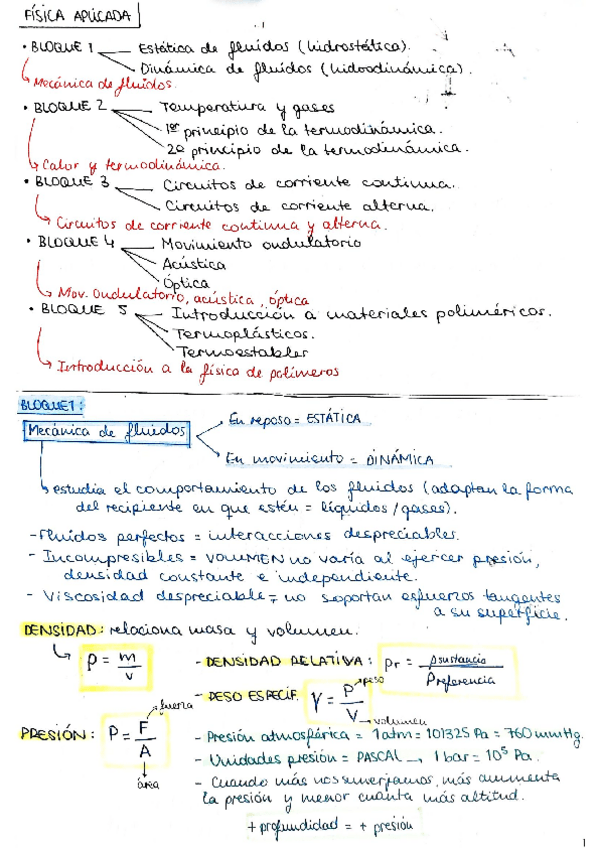 FÍSICA APLICADA
• BLOQUE 1 Estática de fluidos (hidrostática).
Dinámica de fluidos (hidrodinámica).
Mecánica de fluidos.
• BLOQUE 2 Temperatura y gases
1er principio de la termodinámica.
2o principio de la termodinámica.
Calor y termodinámica.
• BLOQUE 3 Circuitos de corriente continua.
Circuitos de corriente alterna.
Circuitos de corriente continua y alterna.
• BLOQUE 4 Movimiento ondulatorio
Acústica
Óptica
Mov. Ondulatorio, acústica, óptica
• BLOQUE 5 Introducción a materiales poliméricos.
Termoplásticos.
Termoestables
Introducción a la física de polímeros
BLOQUE 1:
Mecánica de fluidos
En reposo = ESTÁTICA
En movimiento = DINÁMICA
estudia el comportamiento de los fluidos (adaptan la forma
del recipiente en que estén = líquidos/gases).
- Fluidos perfectos = interacciones despreciables.
- Incompresibles = VOLUMEN no varía al ejercer presión,
densidad constante e independiente.
- Viscosidad despreciable = no soportan esfuerzos tangentes
a su superficie.
DENSIDAD: relaciona masa y volumen.
ρ = m/v
- DENSIDAD RELATIVA: ρr = ρsustancia/ρreferencia
- PESO ESPECIF. γ = P/V → peso → volumen
PRESIÓN: P = F/A fuerza área
- Presión atmosférica = 1 atm = 101325 Pa = 760 mmHg.
- Unidades presión = PASCAL → 1 bar = 10⁵ Pa.
- Cuando más nos sumerjamos, más aumenta
la presión y menor cuanta más altitud.
+ profundidad = + presión
1